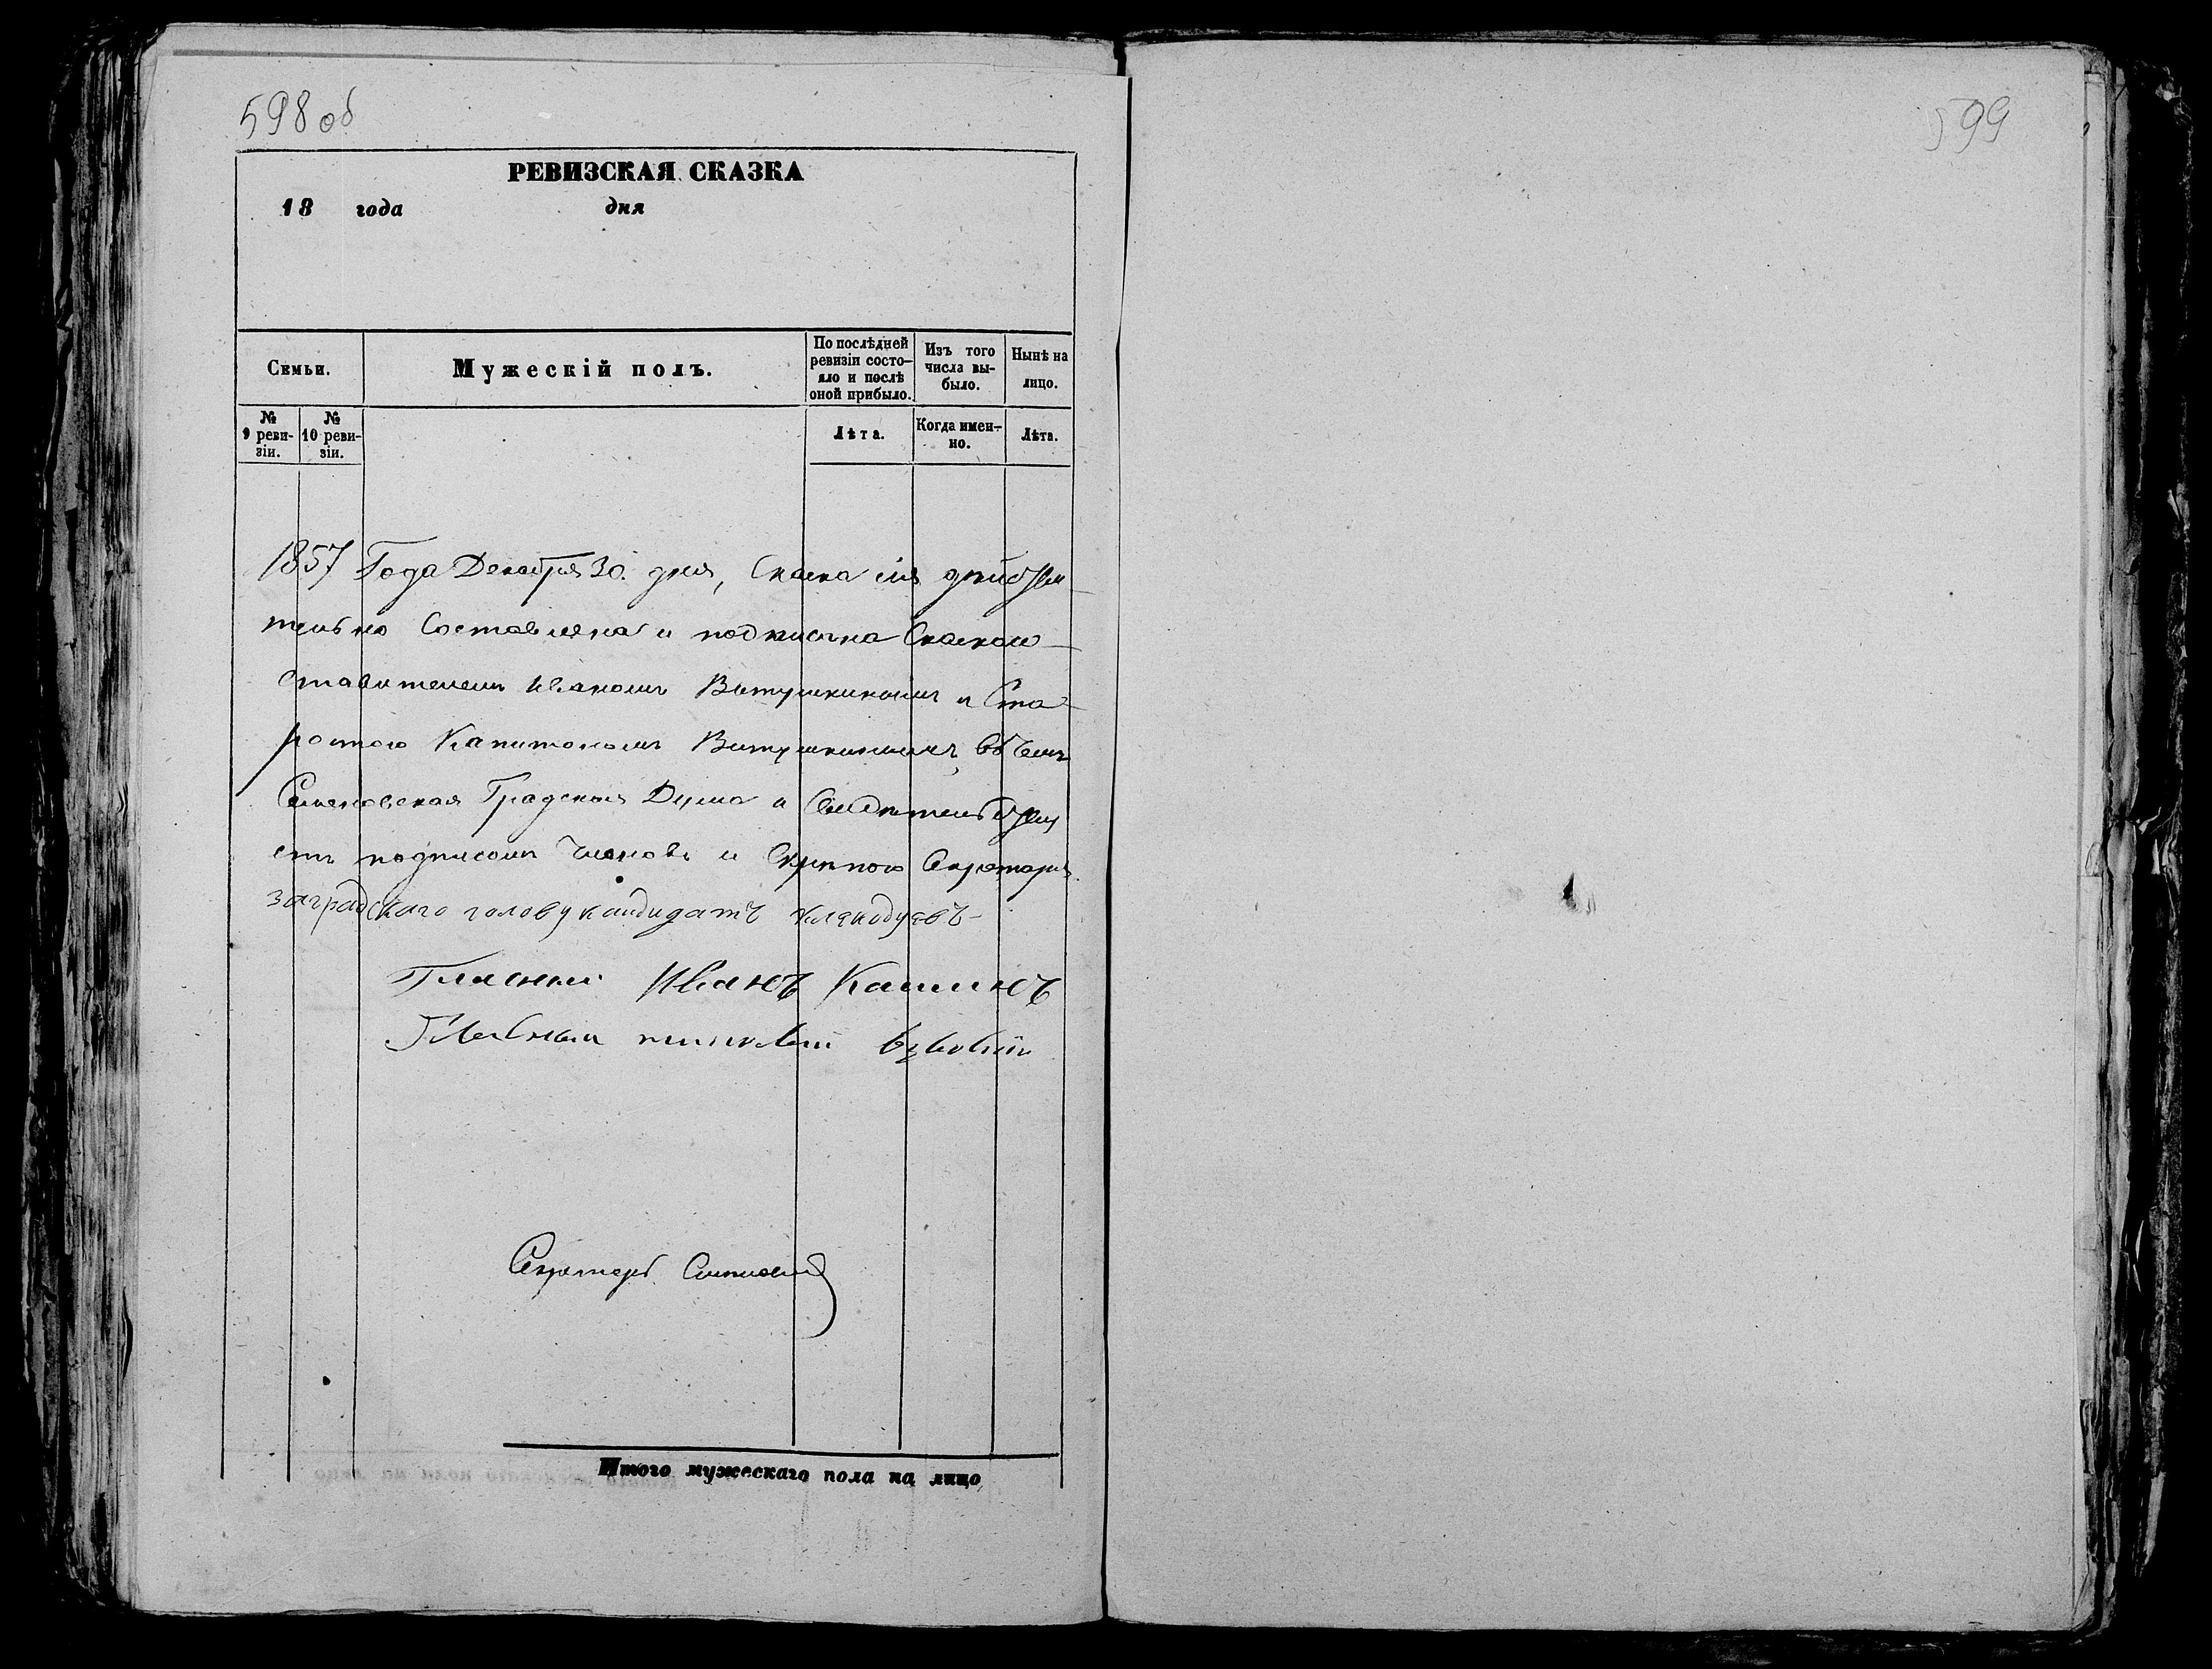 598 об
599
РЕВИЗСКАЯ СКАЗКА
18 года дня
Семьи.
Мужескій полъ.
По послѣдней
ревизіи состо-
яло и послѣ
оной прибыло.
Изъ того
числа вы-
было.
Нынѣ на
лицо.
№
9 реви-
зіи.
№
10 реви-
зіи.
Лѣта.
Когда имен-
но.
Лѣта.
1857 Года Декабря 30. дня, Сказка сія дѣйстви-
тельно Составлена и подписана Сказкосо-
ставителемъ Иваномъ Витушкинымъ и Ста-
ростою Капитономъ Витушкинымъ, въ чемъ
Семеновская Градская Дума и Свидѣтельствуе
етъ подписомъ членовъ и Скрѣпою Секретаря.
за градскаго голову кандидатъ
Гласный Иванъ Кашинъ
Гласный
Секретарь
Итого мужескаго пола на лицо